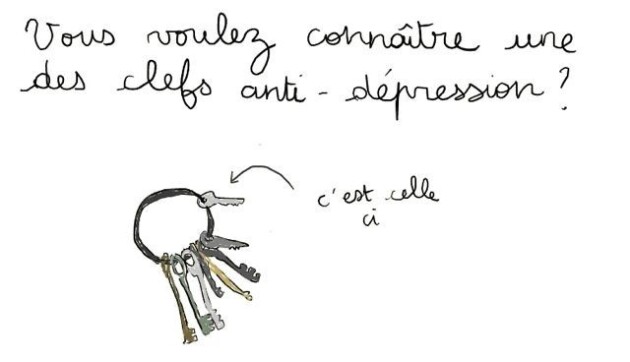 Vous voulez connaître une
des clefs anti-dépression?
c'est celle
ci